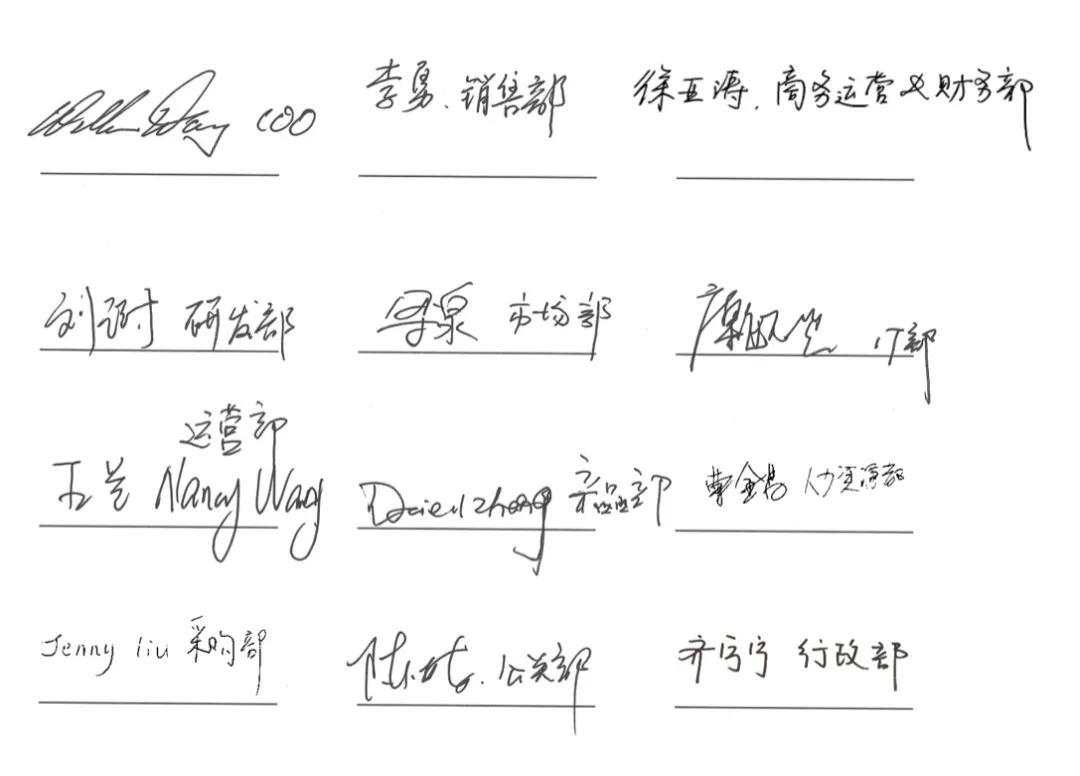 Wang COO
李勇.销售部
徐亚涛.商务运营及财务部
刘 研发部
泉 市场部
IT部
运营部
王兰 Nancy Wang
Daniel Zhang 产品部
曹金 人力资源部
Jenny liu 采购部
陈 .公关部
齐宁宁 行政部